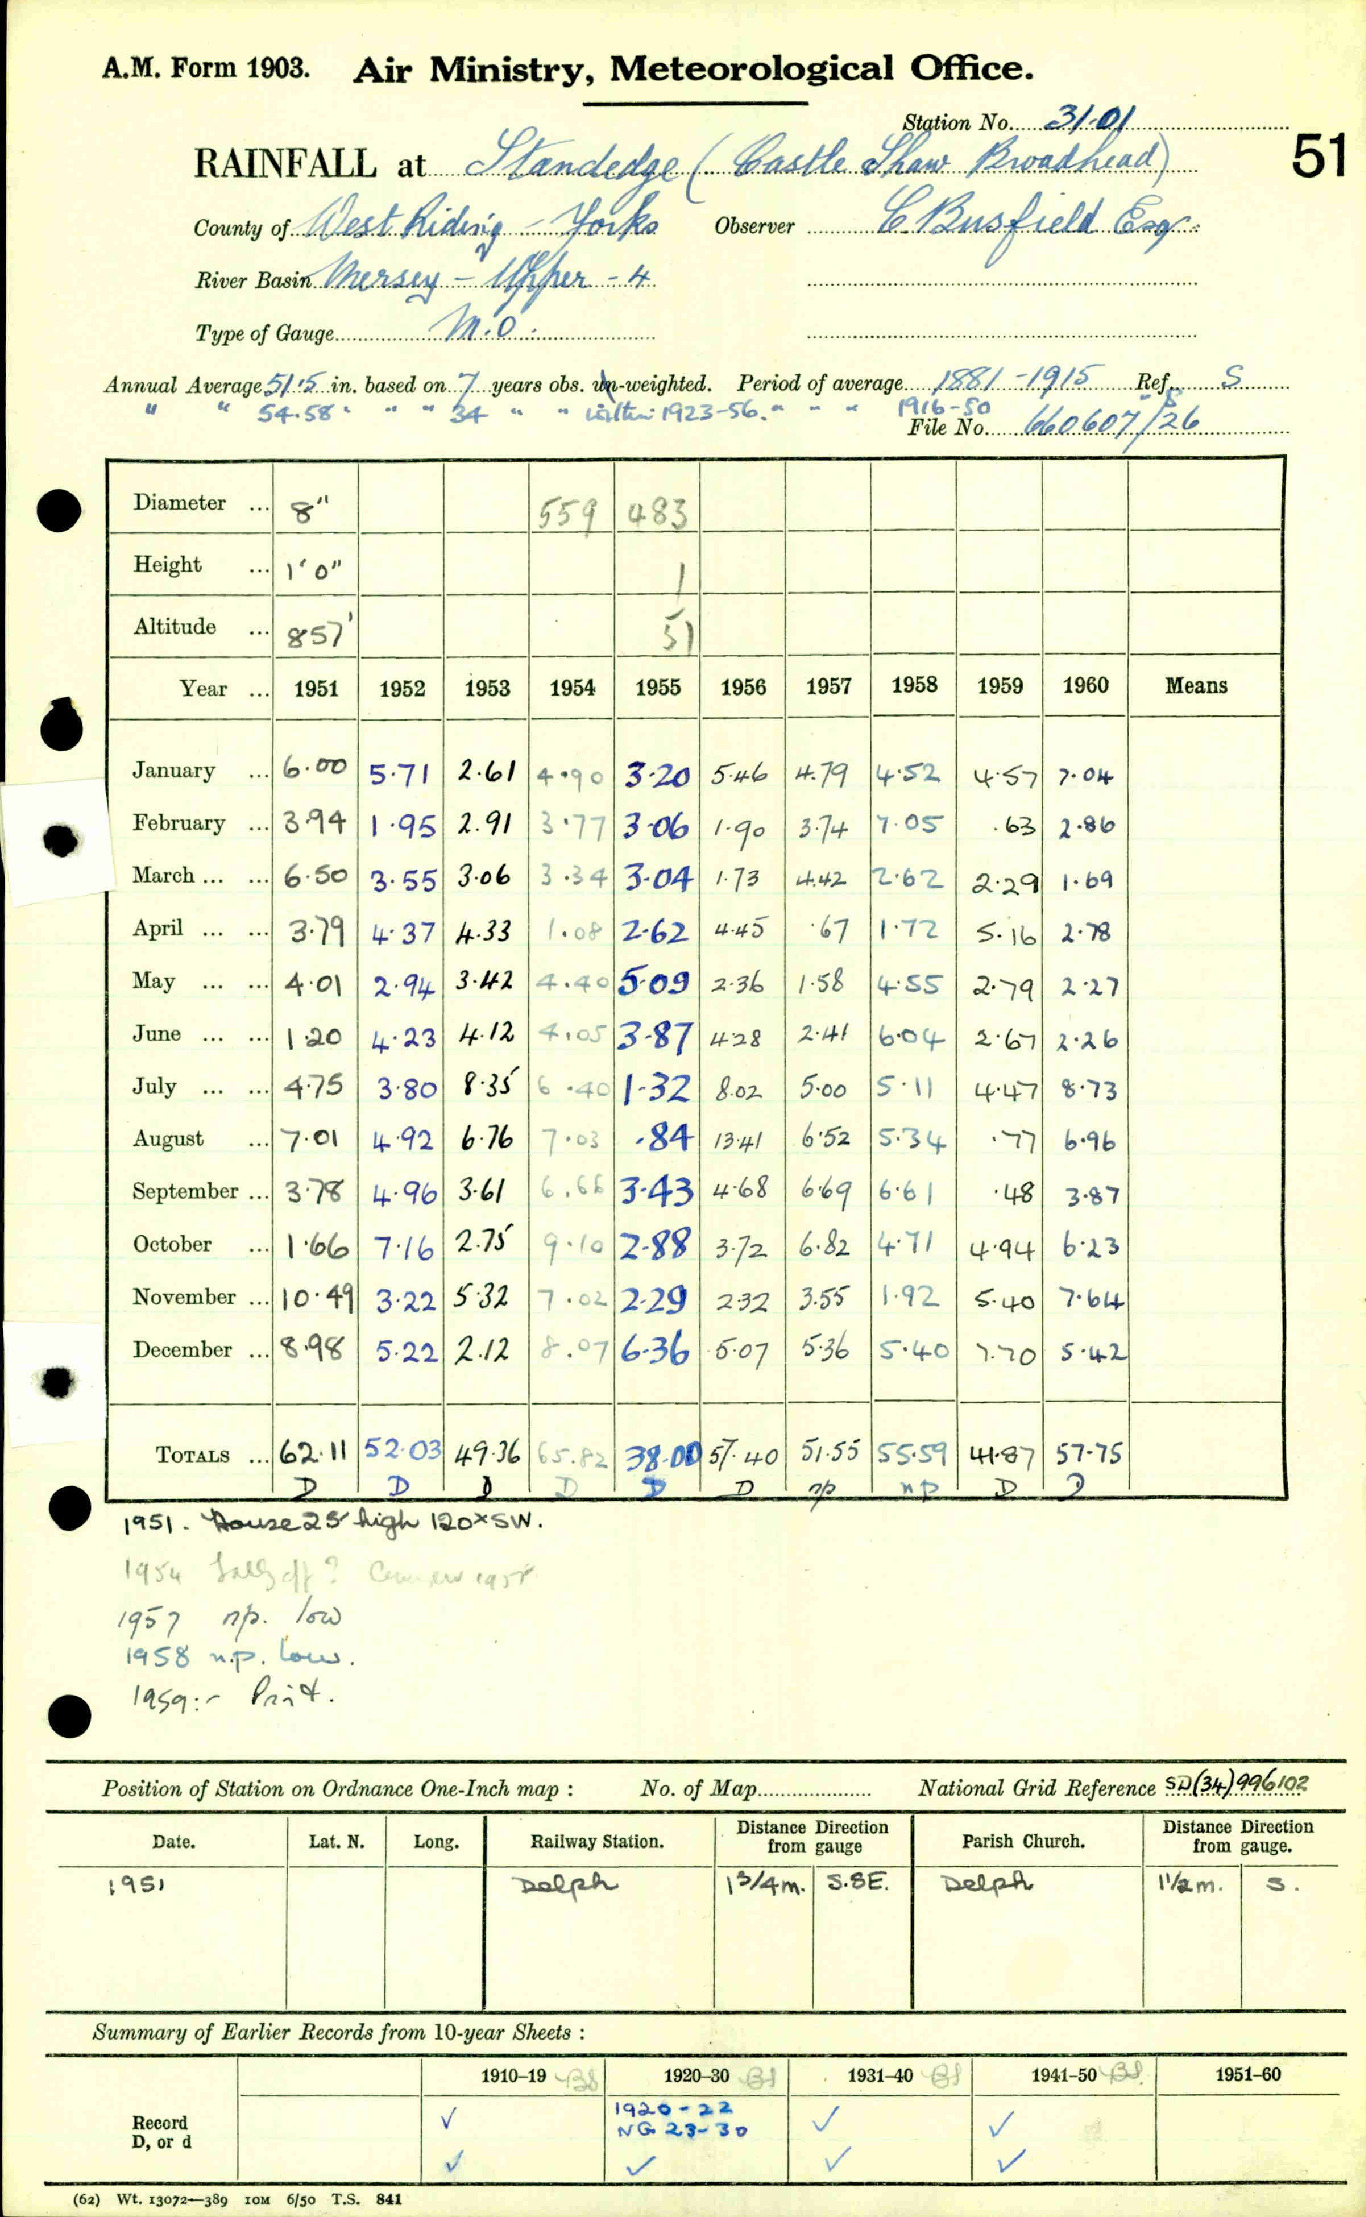 A.M. Form 1903. Air Ministry, Meteorological Office.
Station No. 31·01
51
RAINFALL at Standedge (Castle Shaw Broadhead)
County of West Riding - Yorks Observer C. Busfield Esq.
River Basin Mersey - Upper - 4
Type of Gauge M.O.
Annual Average 51·5 in. based on 7 years obs. un-weighted. Period of average 1881-1915 Ref. S
" " 54.58 " " " 34 " " within 1923-56. " " " 1916-50 " S
File No. 660607/26
Diameter ... 8" 559 483
Height ... 1'0" 1
Altitude ... 857' 51
Year ... 1951 1952 1953 1954 1955 1956 1957 1958 1959 1960 Means
January ... 6·00 5·71 2·61 4·90 3·20 5·46 4·79 4·52 4·57 7·04
February ... 3·94 1·95 2·91 3·77 3·06 1·90 3·74 7·05 ·63 2·86
March ... ... 6·50 3·55 3·06 3·34 3·04 1·73 4·42 2·62 2·29 1·69
April ... ... 3·79 4·37 4·33 1·08 2·62 4·45 ·67 1·72 5·16 2·78
May ... ... 4·01 2·94 3·42 4·40 5·09 2·36 1·58 4·55 2·79 2·27
June ... ... 1·20 4·23 4·12 4·05 3·87 4·28 2·41 6·04 2·67 2·26
July ... ... 4·75 3·80 8·35 6·40 1·32 8·02 5·00 5·11 4·47 8·73
August ... 7·01 4·92 6·76 7·03 ·84 13·41 6·52 5·34 ·77 6·96
September ... 3·78 4·96 3·61 6·66 3·43 4·68 6·69 6·61 ·48 3·87
October ... 1·66 7·16 2·75 9·10 2·88 3·72 6·82 4·71 4·94 6·23
November ... 10·49 3·22 5·32 7·02 2·29 2·32 3·55 1·92 5·40 7·64
December ... 8·98 5·22 2·12 8·07 6·36 5·07 5·36 5·40 7·70 5·42
TOTALS ... 62·11 52·03 49·36 65·82 38·00 57·40 51·55 55·59 41·87 57·75
D D D D D D np np D D
1951. House 25' high 120× SW.
1954 1955
1957 np. low
1958 n.p. low.
1959:- Print.
Position of Station on Ordnance One-Inch map : No. of Map National Grid Reference SD(34)996102
Date. Lat. N. Long. Railway Station. Distance Direction from gauge Parish Church. Distance Direction from gauge.
1951 Delph 1 3/4 m. S.SE. Delph 1 1/2 m. S.
Summary of Earlier Records from 10-year Sheets :
1910–19 BS 1920–30 BS 1931–40 BS 1941–50 BS 1951–60
Record D, or d ✓ 1920-22 NG 23-30 ✓ ✓
✓ ✓ ✓ ✓
(62) Wt. 13072—389 10M 6/50 T.S. 841